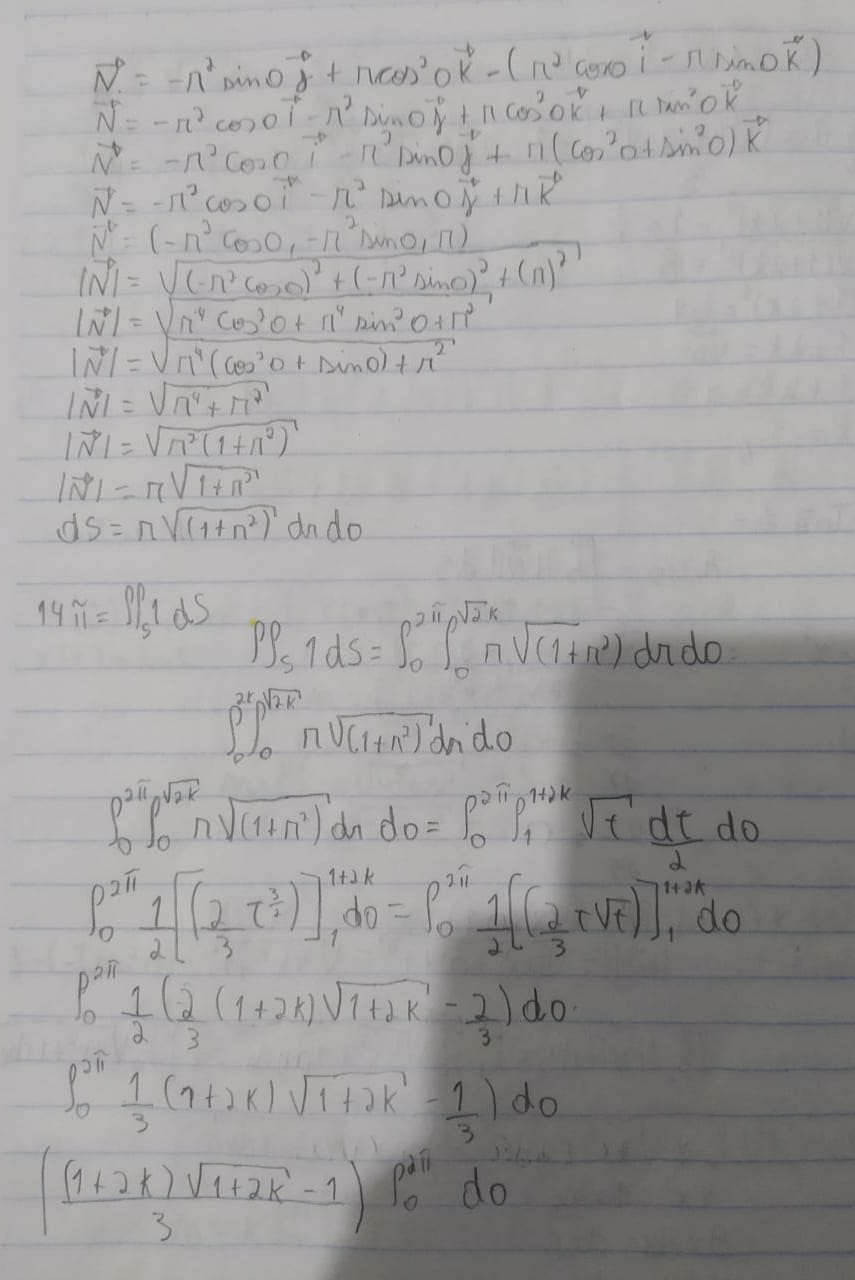 N⃗ = -r² sinθ j⃗ + r cos²θ k⃗ - (r² cosθ i⃗ - r sinθ k⃗)
N⃗ = -r² cosθ i⃗ - r² sinθ j⃗ + r cos²θ k⃗ + r sin²θ k⃗
N⃗ = -r² cosθ i⃗ - r² sinθ j⃗ + r(cos²θ + sin²θ) k⃗
N⃗ = -r² cosθ i⃗ - r² sinθ j⃗ + r k⃗
N⃗ = (-r² cosθ, -r² sinθ, r)
|N⃗| = √((-r² cosθ)² + (-r² sinθ)² + (r)²)
|N⃗| = √(r⁴ cos²θ + r⁴ sin²θ + r²)
|N⃗| = √(r⁴(cos²θ + sinθ) + r²)
|N⃗| = √(r⁴ + r²)
|N⃗| = √(r²(1+r²))
|N⃗| = r√(1+r²)
dS = r√(1+r²) dr dθ
14π = ∬_S 1 dS
∬_S 1 dS = ∫_0^{2π} ∫_0^{√2k} r√(1+r²) dr dθ
∫_0^{2π} ∫_0^{√2k} r√(1+r²) dr dθ
∫_0^{2π} ∫_0^{√2k} r√(1+r²) dr dθ = ∫_0^{2π} ∫_1^{1+2k} √t dt/2 dθ
∫_0^{2π} 1/2 [(2/3 t^{3/2})]_1^{1+2k} dθ = ∫_0^{2π} 1/2 [(2/3 t√t)]_1^{1+2k} dθ
∫_0^{2π} 1/2 (2/3 (1+2k)√(1+2k) - 2/3) dθ
∫_0^{2π} 1/3 (1+2k)√(1+2k) - 1/3) dθ
(((1+2k)√(1+2k) - 1)/3) ∫_0^{2π} dθ